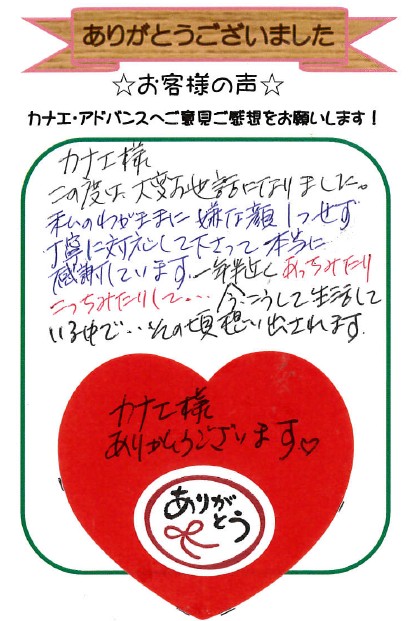 ありがとうございました
☆お客様の声☆
カナエ・アドバンスへご意見ご感想をお願いします！
カナエ様
この度は、大変お世話になりました。
私のわがままに嫌な顔1つせず
丁寧に対応して下さって本当に
感謝しています。一年半近くあっちみたり
こっちみたりして・・・今こうして生活して
いる中で・・その頃想い出されます。
カナエ様
ありがとうございます♡
ありが
とう